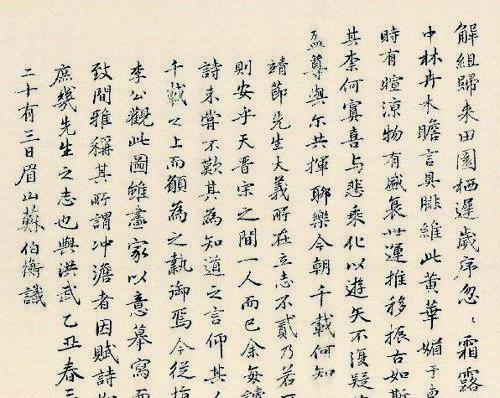 解組歸来田園栖遲歳序忽〻霜露
中林卉木瞻言具腓維此黄華媚于
時有暄涼物有盛衰世運推移振古如斯
其奈何寞喜与悲乘化以遊矣不復疑
尊與尓共揮聊樂今朝千載何知
靖節先生大義所在立志不貳乃若
則安乎天晋宋之間一人而已余每讀
詩未甞不歎其為知道之言仰其
千載之上而願為之執御焉今從
李公觀此圖雖畫家以意摹寫而
致閒雅稱其所謂冲澹者因賦詩
庶幾先生之志也與洪武乙丑春三
二十有三日眉山蘇伯衡識